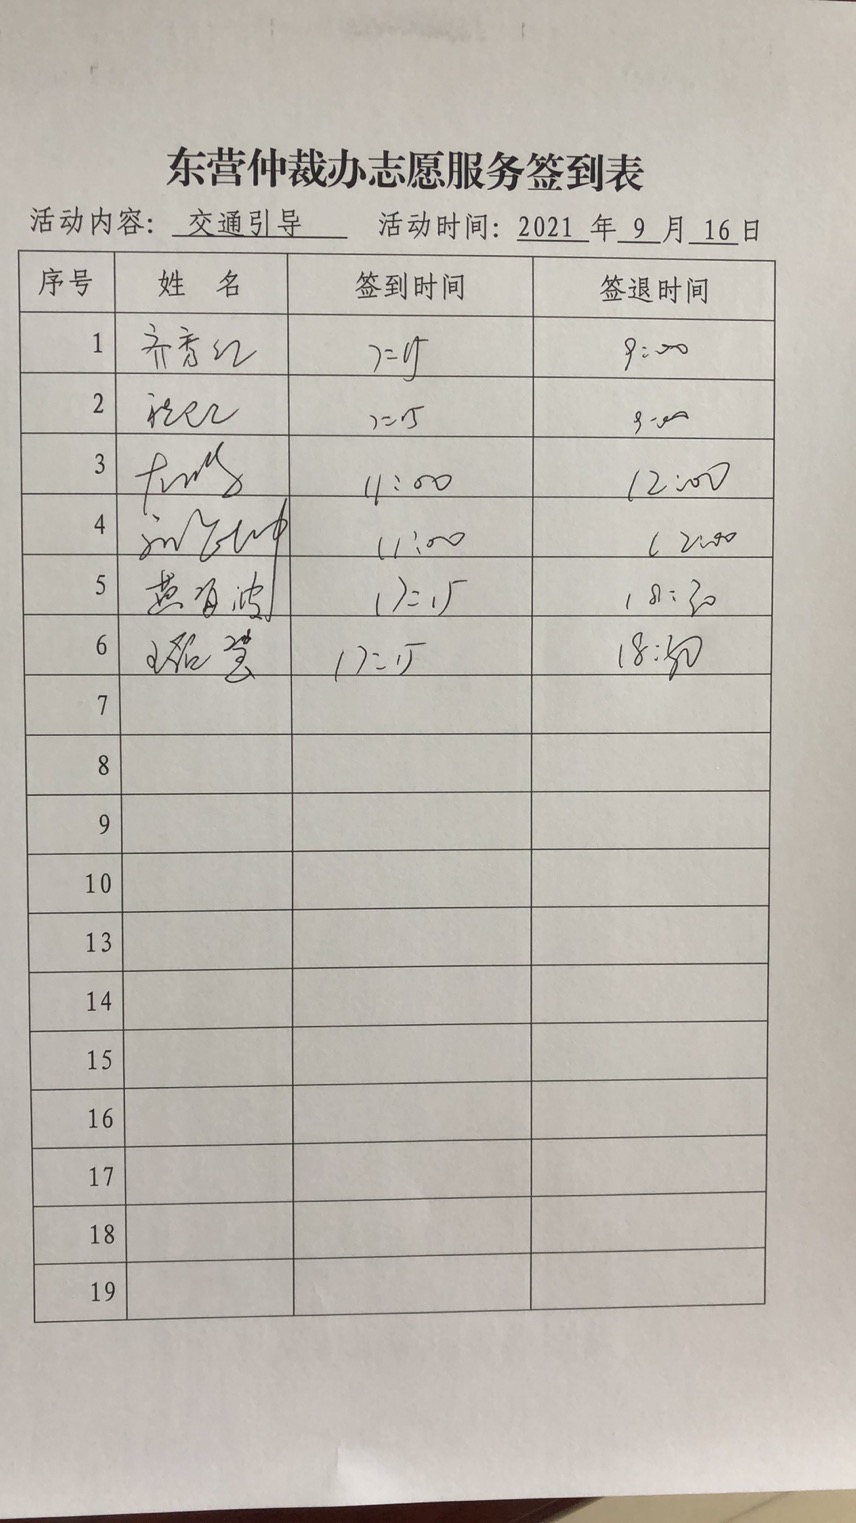 东营仲裁办志愿服务签到表
活动内容: 交通引导 活动时间: 2021 年 9 月 16 日
序号 姓 名 签到时间 签退时间
1 齐秀红 7:15 9:00
2 7:15 9:00
3 11:00 12:00
4 11:00 12:00
5 燕 波 17:15 18:30
6 17:15 18:30
7
8
9
10
13
14
15
16
17
18
19